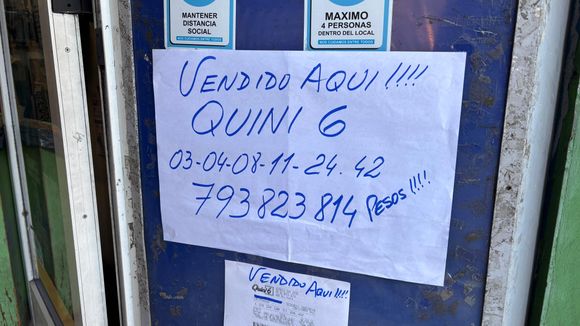 MANTENER
DISTANCIA
SOCIAL
NOS CUIDAMOS ENTRE TODOS
MAXIMO
4 PERSONAS
DENTRO DEL LOCAL
NOS CUIDAMOS ENTRE TODOS
VENDIDO AQUI!!!!
QUINI 6
03-04-08-11-24.42
793823814 PESOS!!!!
VENDIDO AQUI!!!!
Quini 6